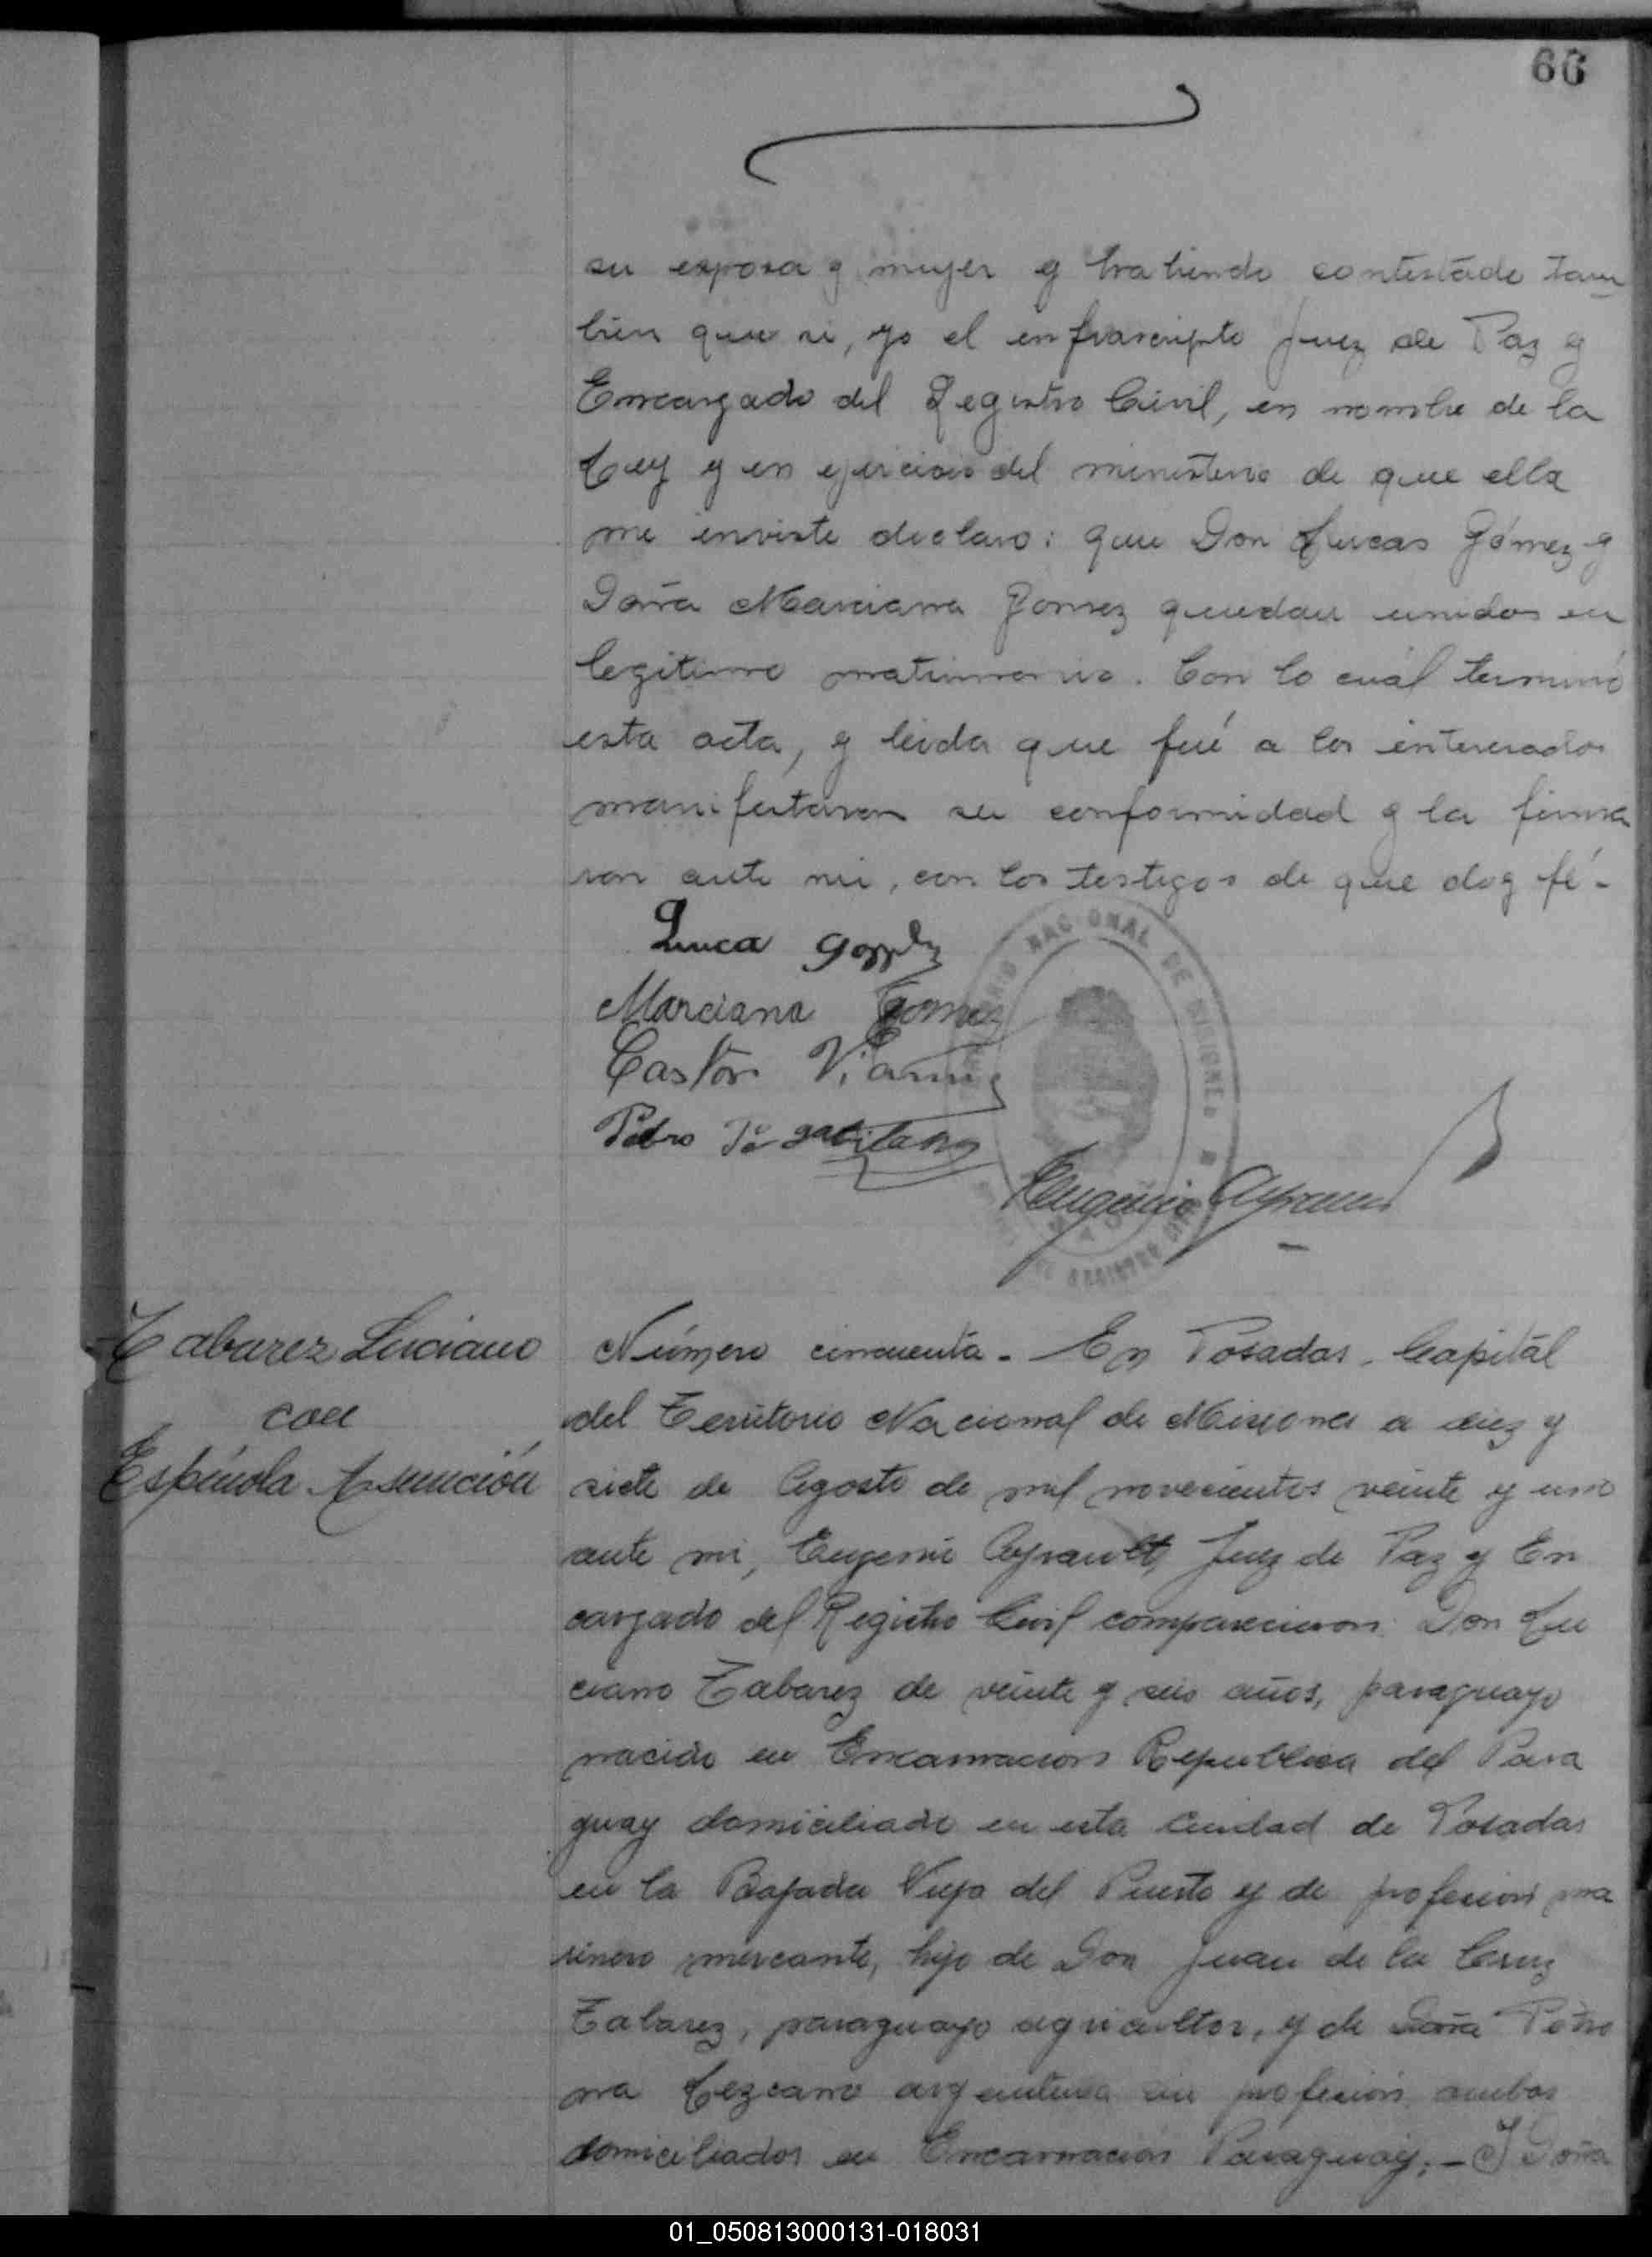 66
su esposa y mujer y habiendo contestado tam
bien que si, yo el infrascripto Juez de Paz y
Encargado del Registro Civil, en nombre de la
Ley y en ejercicio del ministerio de que ella
me inviste declaro: que Don Lucas Gómez y
Doña Marciana Gomez quedan unidos en
legitimo matrimonio. Con lo cuál terminó
esta acta, y leida que fué a los interesados
manifestaron su conformidad y la firma
ron ante mi, con los testigos de que doy fé-
Luca
Marciana Gomez
Castor
Pedro
NACIONAL DE MISIONES
REGISTRO
Eugenio Ayrault
Tabarez Luciano
con
Espínola Asunción
Número cincuenta. En Posadas, Capitál
del Territorio Nacional de Misiones a diez y
siete de Agosto de mil novecientos veinte y uno
ante mi, Eugenio Ayrault, Juez de Paz y En
cargado del Registro Civil comparecieron: Don Lu
ciano Tabarez de veinte y seis años, paraguayo
nacido en Encarnacion Republica del Para
guay domiciliado en esta Ciudad de Posadas
en la Bajada Vieja del Puerto y de profesion ma
rinero mercante, hijo de Don Juan de la Cruz
Tabarez, paraguayo agricultor, y de Doña Petro
na Lezcano argentina sin profesion ambos
domiciliados en Encarnacion Paraguay.- Y Doña
01_050813000131-018031